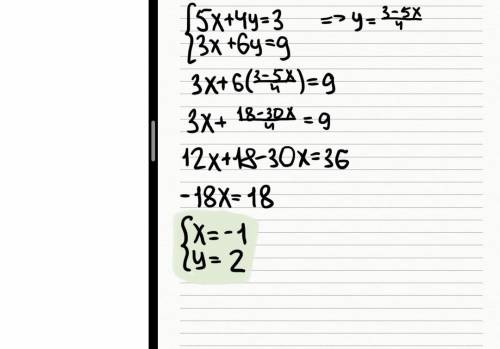 {5x+4y=3 => y= (3-5x)/4
{3x+6y=9
3x+6((3-5x)/4)=9
3x+ (18-30x)/4 =9
12x+18-30x=36
-18x=18
{x=-1
{y= 2